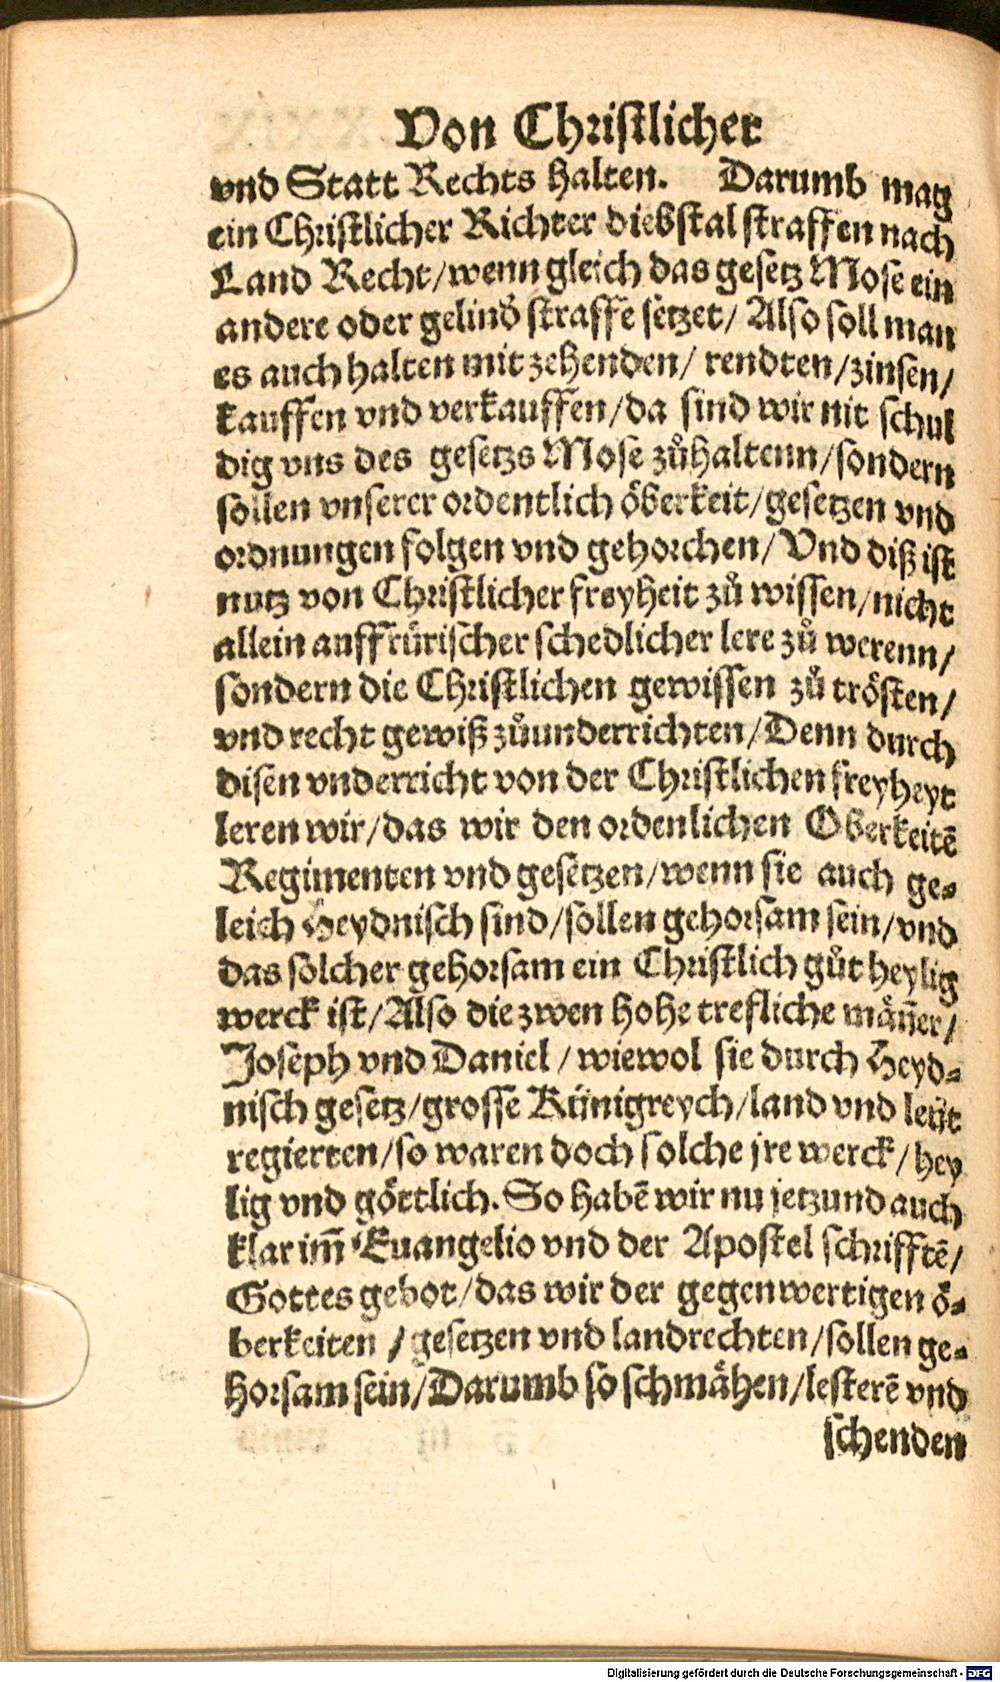 Von Christlicher
vnd Statt Rechts halten. Darumb mag
ein Christlicher Richter diebstal straffen nach
Land Recht/wenn gleich das gesetz Mose ein
andere oder gelinď straffe setzet/ Also soll man
es auch halten mit zehenden/ rendten/zinsen/
kauffen vnd verkauffen/da sind wir nit schul
dig vns des gesetzs Mose zůhaltenn/sondern
sollen vnserer ordentlich öberkeit/gesetzen vnd
ordnungen folgen vnd gehorchen/Vnd diß ist
nutz von Christlicher freyheit zů wissen/nicht
allein auffrürischer schedlicher lere zů werenn/
sondern die Christlichen gewissen zů trösten/
vnd recht gewiß zůunderrichten/Denn durch
disen vnderricht von der Christlichen freyheyt
leren wir/das wir den ordenlichen Oberkeitē
Regimenten vnd gesetzen/wenn sie auch ge-
leich Heydnisch sind/sollen gehorsam sein/vnd
das solcher gehorsam ein Christlich gůt heylig
werck ist/Also die zwen hohe trefliche män̄er/
Joseph vnd Daniel/wiewol sie durch Heyd-
nisch gesetz/grosse Künigreych/land vnd leüt
regierten/so waren doch solche jre werck/hey
lig vnd göttlich. So habē wir nu jetzund auch
klar im̄ Euangelio vnd der Apostel schrifftē/
Gottes gebot/das wir der gegenwertigen ö-
berkeiten/gesetzen vnd landrechten/sollen ge-
horsam sein/Darumb so schmähen/lesterē vnd
schenden
Digitalisierung gefördert durch die Deutsche Forschungsgemeinschaft - DFG